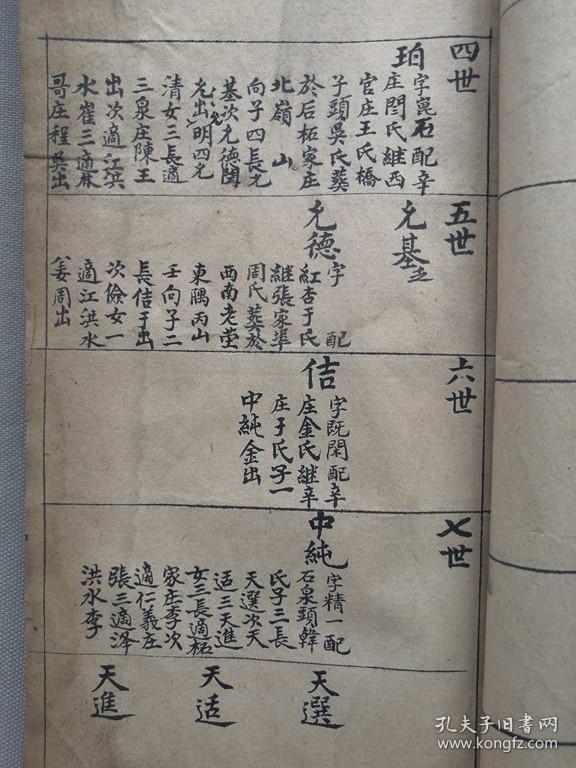 四世
珀
字崑石配辛
庄閆氏継西
官庄王氏橋
子頭吳氏葬
於后柘家庄
北嶺山
向子四長允
基次允德閆
出三允明四允
清女三長適
三泉庄陳王
出次適江洪
水崔三適林
哥庄程吳出
五世
允基
允德
字 配
紅杏于氏
継張家埠
周氏葬於
西南老塋
東隅丙山
壬向子二
長佶于出
次儉女一
適江洪水
姜周出
六世
佶
字既閑配辛
庄金氏継辛
庄于氏子一
中純金出
七世
中純
字精一配
石泉頭韓
氏子三長
天選次天
适三天進
女三長適柘
家庄李次
適仁義庄
張三適泽
洪水李
天選
天适
天進
孔夫子旧书网
www.kongfz.com